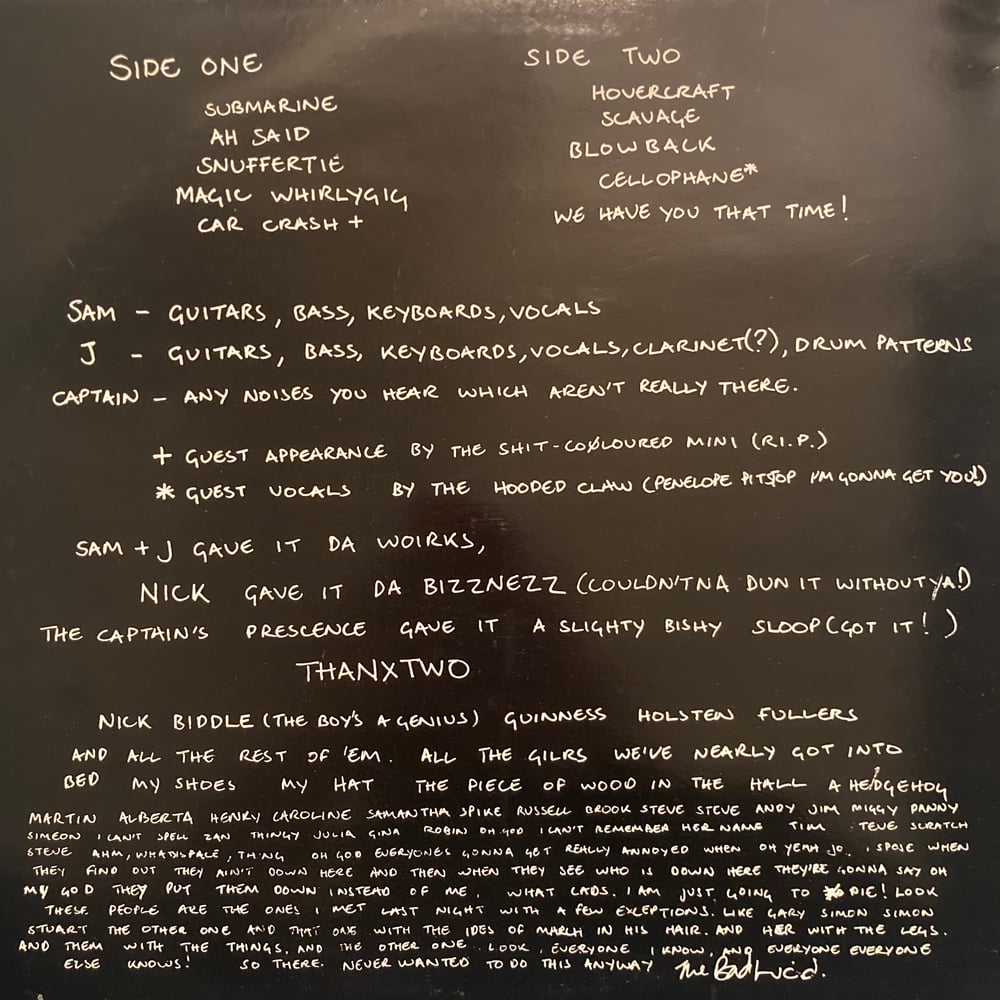 SIDE ONE
SUBMARINE
AH SAID
SNUFFERTIE
MAGIC WHIRLYGIG
CAR CRASH +
SIDE TWO
HOVERCRAFT
SCAVAGE
BLOWBACK
CELLOPHANE*
WE HAVE YOU THAT TIME!
SAM - GUITARS, BASS, KEYBOARDS, VOCALS
J - GUITARS, BASS, KEYBOARDS, VOCALS, CLARINET(?), DRUM PATTERNS
CAPTAIN - ANY NOISES YOU HEAR WHICH AREN'T REALLY THERE.
+ GUEST APPEARANCE BY THE SHIT-COLOURED MINI (R.I.P.)
* GUEST VOCALS BY THE HOODED CLAW (PENELOPE PITSTOP I'M GONNA GET YOU!)
SAM + J GAVE IT DA WOIRKS,
NICK GAVE IT DA BIZZNEZZ (COULDN'TNA DUN IT WITHOUT YA!)
THE CAPTAIN'S PRESCENCE GAVE IT A SLIGHTY BISHY SLOOP (GOT IT!)
THANXTWO
NICK BIDDLE (THE BOY'S A GENIUS) GUINNESS HOLSTEN FULLERS
AND ALL THE REST OF 'EM. ALL THE GILRS WE'VE NEARLY GOT INTO
BED MY SHOES MY HAT THE PIECE OF WOOD IN THE HALL A HEDGEHOG
MARTIN ALBERTA HENRY CAROLINE SAMANTHA SPIKE RUSSELL BROOK STEVE STEVE ANDY JIM MIGGY DANNY
SIMEON I CAN'T SPELL ZAN THINGY JULIA GINA ROBIN OH GOD I CAN'T REMEMBER HER NAME TIM TEVE SCRATCH
STEVE AHM, WHATDISPALE, THING OH GOD EVERYONES GONNA GET REALLY ANNOYED WHEN OH YEAH JO. I SPOSE WHEN
THEY FIND OUT THEY AIN'T DOWN HERE AND THEN WHEN THEY SEE WHO IS DOWN HERE THEY'RE GONNA SAY OH
MY GOD THEY PUT THEM DOWN INSTEAD OF ME. WHAT CADS. I AM JUST GOING TO DIE! LOOK
THESE PEOPLE ARE THE ONES I MET LAST NIGHT WITH A FEW EXCEPTIONS. LIKE GARY SIMON SIMON
STUART THE OTHER ONE AND THAT ONE WITH THE IDES OF MARCH IN HIS HAIR. AND HER WITH THE LEGS.
AND THEM WITH THE THINGS, AND THE OTHER ONE. LOOK, EVERYONE I KNOW, AND EVERYONE EVERYONE
ELSE KNOWS! SO THERE. NEVER WANTED TO DO THIS ANYWAY The Bad Lucid.